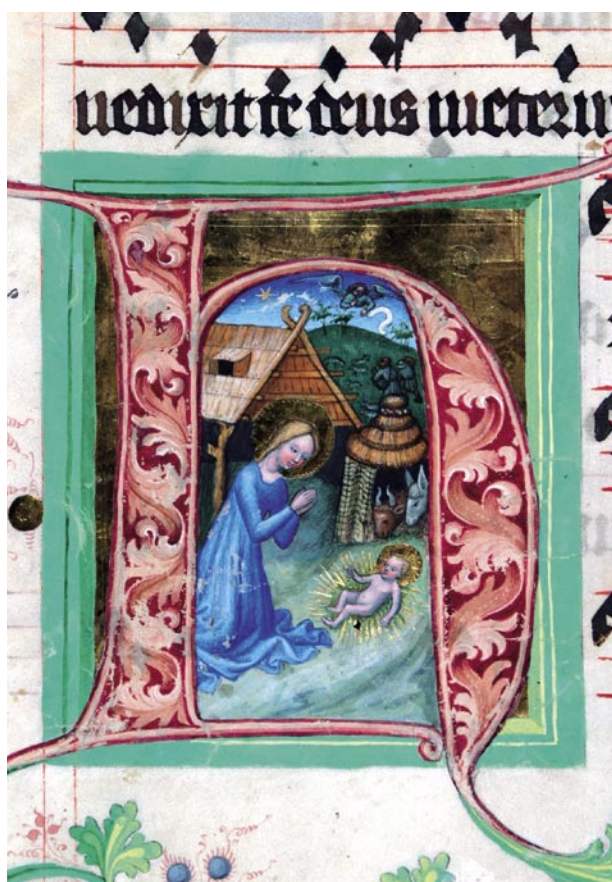 nedixit te deus in eternu
H